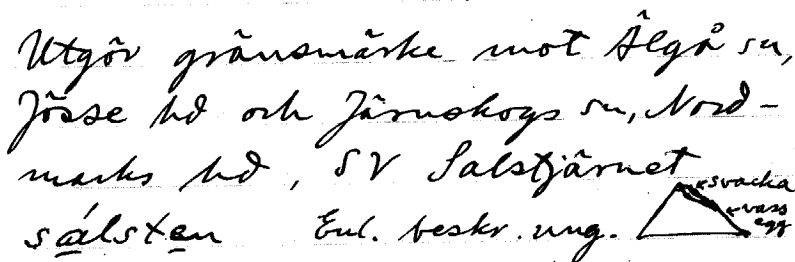 Utgör gränsmärke mot Älgå sn,
Jösse hd och Järnskogs sn, Nord-
marks hd, SV Salstjärnet
sálsten Enl. beskr. ung.
svacka
vass
egg